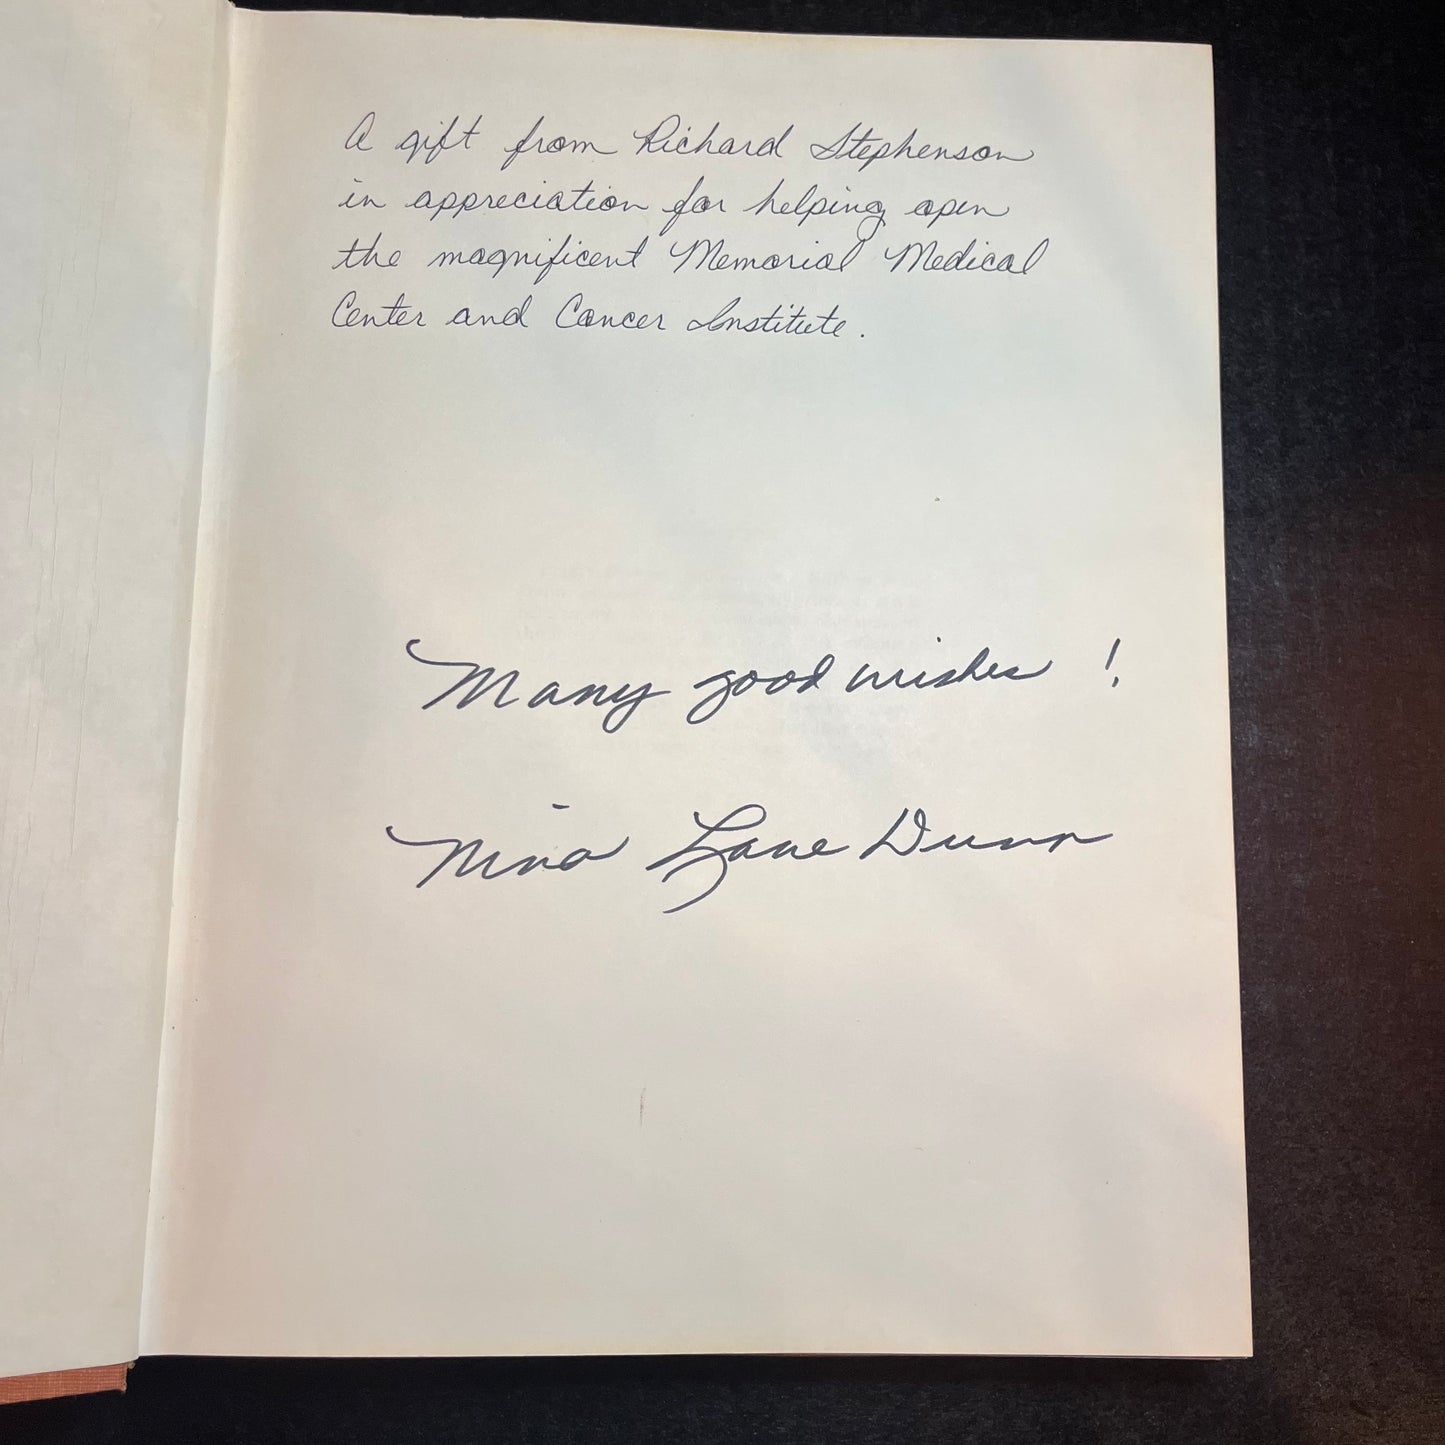 A gift from Richard Stephenson
in appreciation for helping open
the magnificent Memorial Medical
Center and Cancer Institute.
Many good wishes!
Nina Lane Dunn